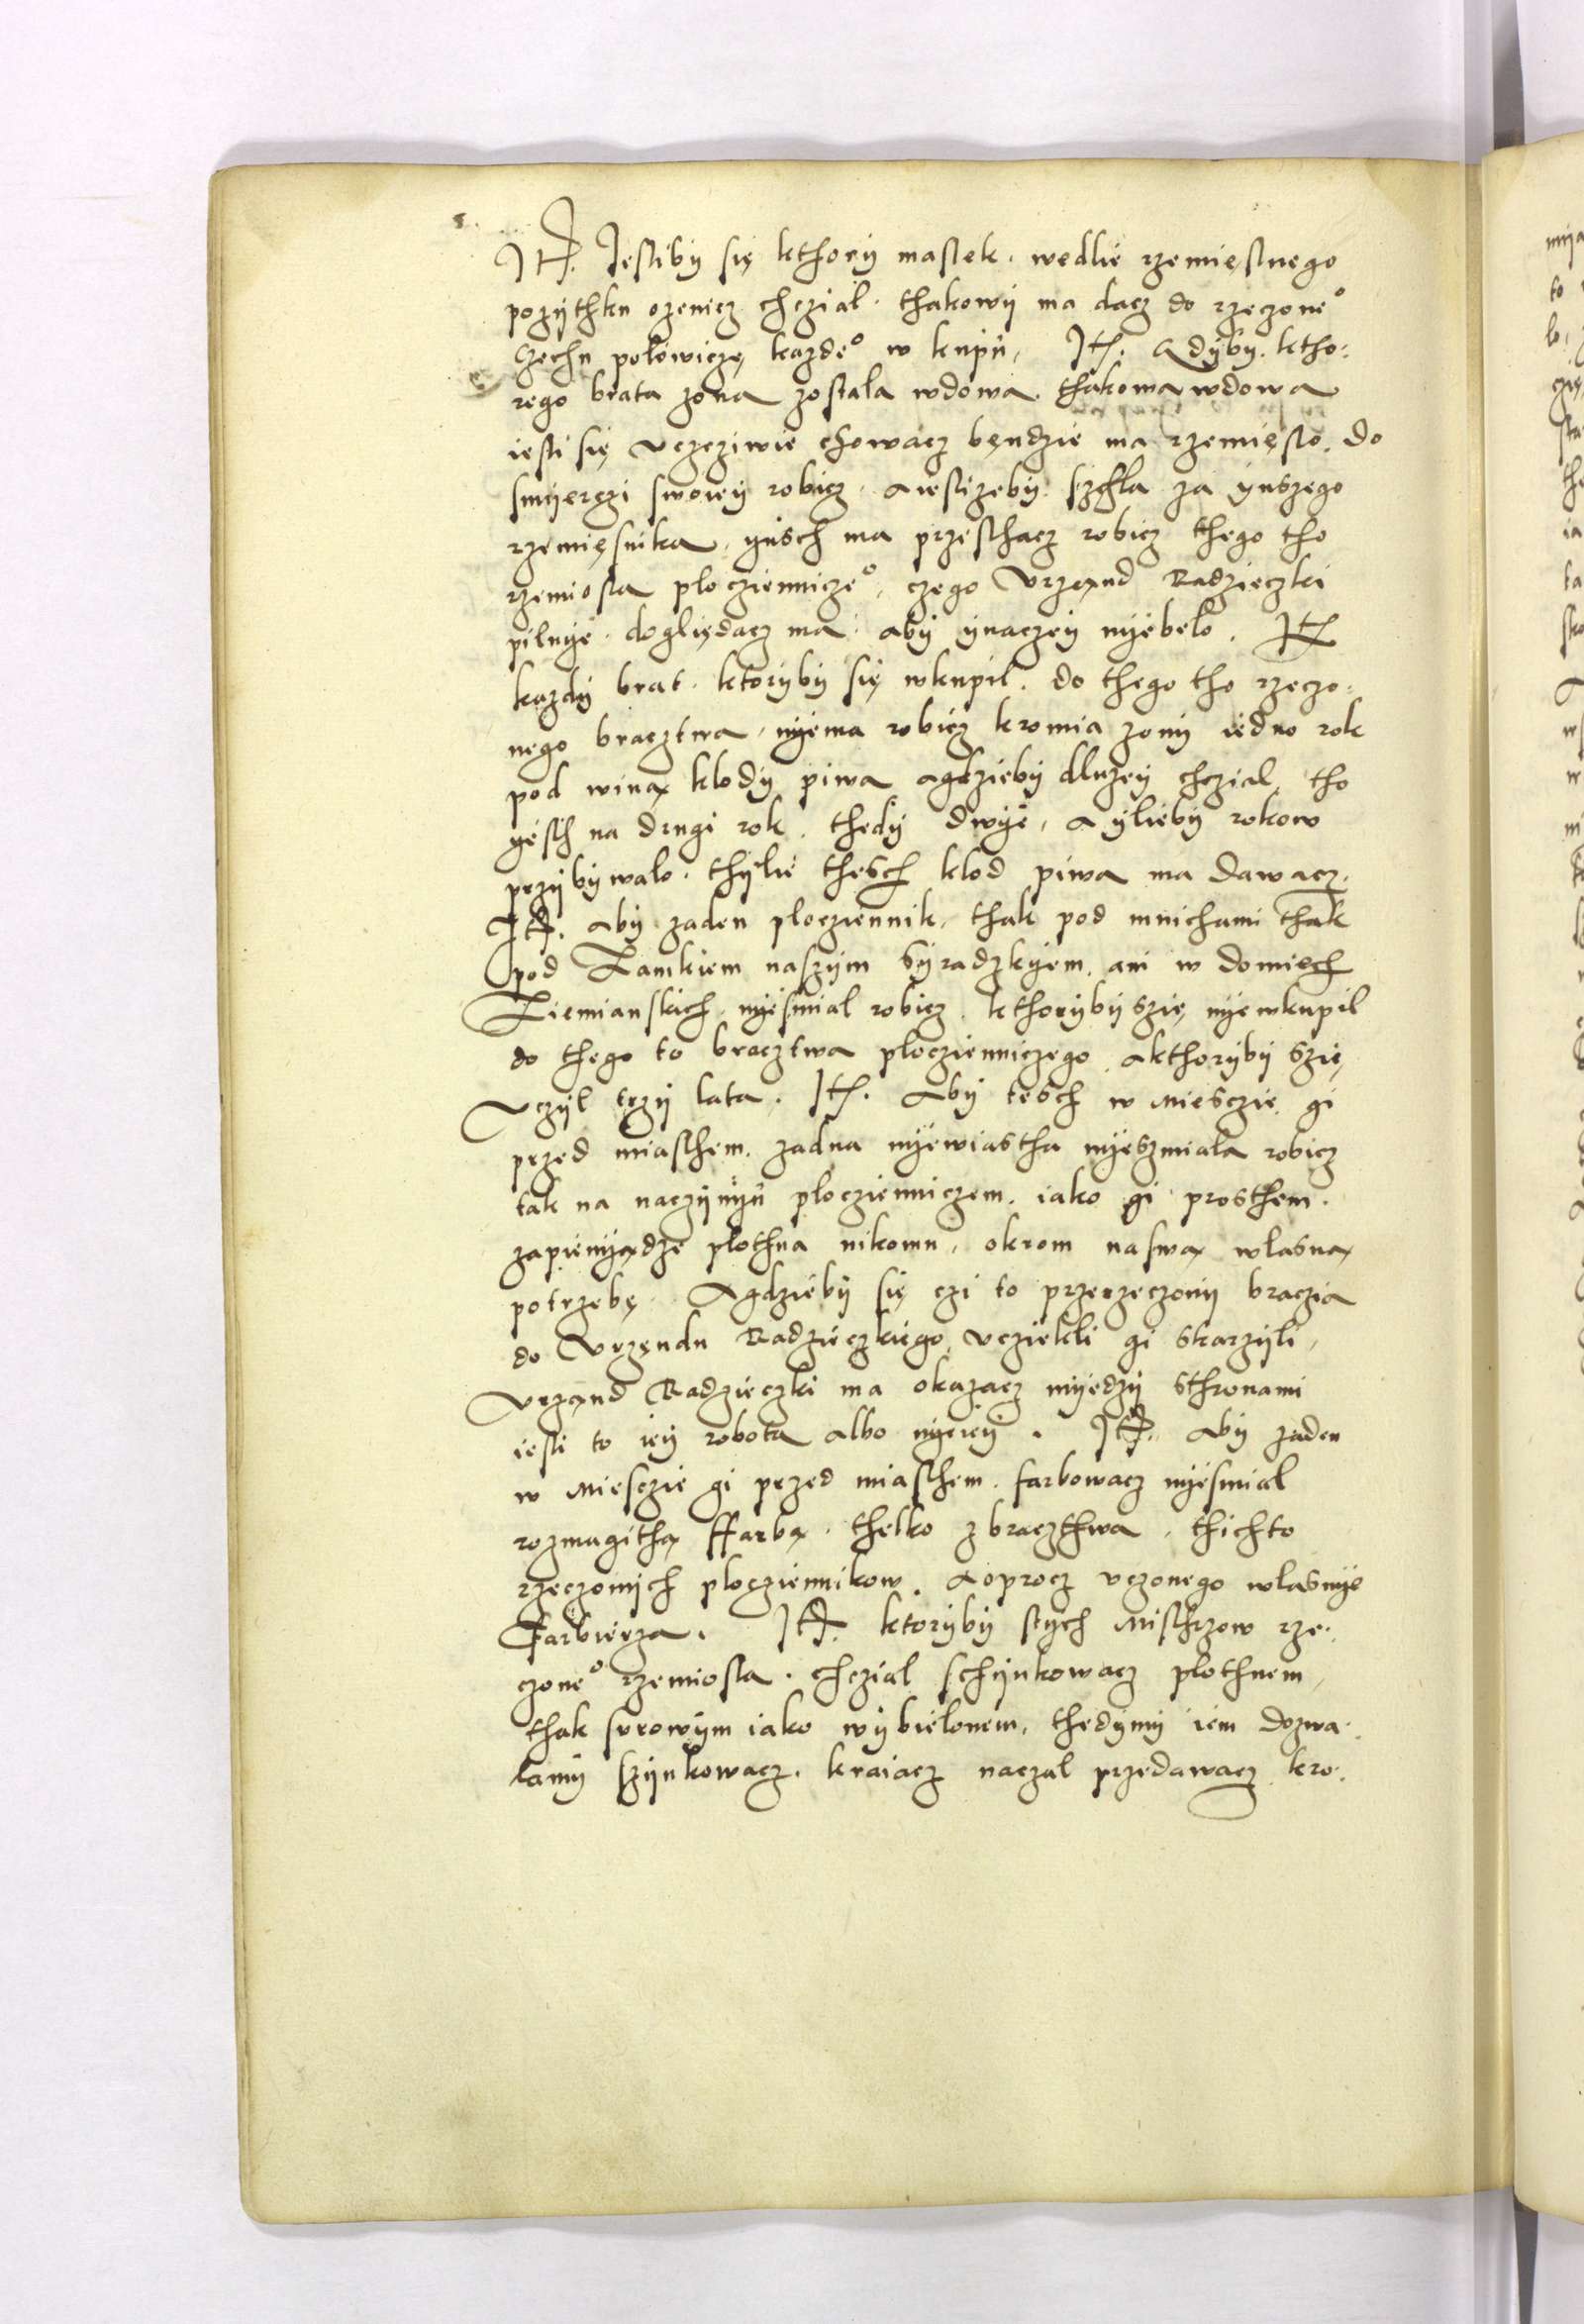 It. Jestliby się kthory mastek. wedlie rzemięslnego
pozythku ozenicz chczial. thakowy ma dacz do rzeczone°
Czechu połowiczę kazde° w kupu, It. Gdyby. ktho:
rego brata zona zostala wdowa. thakowa wdowa
iesli się vczcziwie chowacz będzie ma rzemięslo. do
smyerczi swoiey robicz. a iesli zeby. szchla za ynszego
rzemięsnika, yusch ma przesthacz robicz thego tho
rzemiosla plocziennicze°, czego Vrzand Radzieczki
pilnye. doględacz ma. aby ynaczey nyebelo. It
kazdy brat. ktoryby się wkupil. do thego tho rzeczo:
nego bracztwa, nyema robicz kromia zony iedno rok
pod winą klody piwa agdzieby dluzey chczial, tho
yesth na drugi rok. thedy dwye, a ylieby rokow
przybywalo. thylie thesch klod piwa ma dawacz.
It. aby zaden plocziennik, thak pod mnichami thak
pod Zamkiem naszym Syradzkyem, ani w domiech
Ziemianskich nyesmial robicz. kthoryby szię nyewkupil
do thego to bracztwa plocienniczego, akthoryby szię
vczyl trzy lata. It. Aby tesch w miesczie gi
przed miasthem. zadna nyewiastha nyeszmiala robicz
tak na naczynyu plocienniczem. iako gi prosthem.
zapienyądze plothna nikomu, okrom naswą wlasną
potrzebę. Agdzieby się czi to przerzeczony braczia
do Vrzęndu Radzieczkiego vciekli gi skarzyli,
vrzand Radzieczki ma okazacz myedzy sthronami
iesli to iey robota albo nyeiey. It. aby zaden
w miesczie gi przed miasthem. farbowacz nyesmial
rozmagithą ffarbą. thelko z braczthwa. thichto
rzeczonych plocziennikow. a oprocz vczonego wlasnye
Farbierza. It. ktoryby stych Misthrzow rze:
czone° rzemiosla. chczial schynkowacz plothnem,
thak surowym iako wybielonem, thedymy iem dozwa:
lamy szynkowacz. kraiacz naczal przedawacz kro: